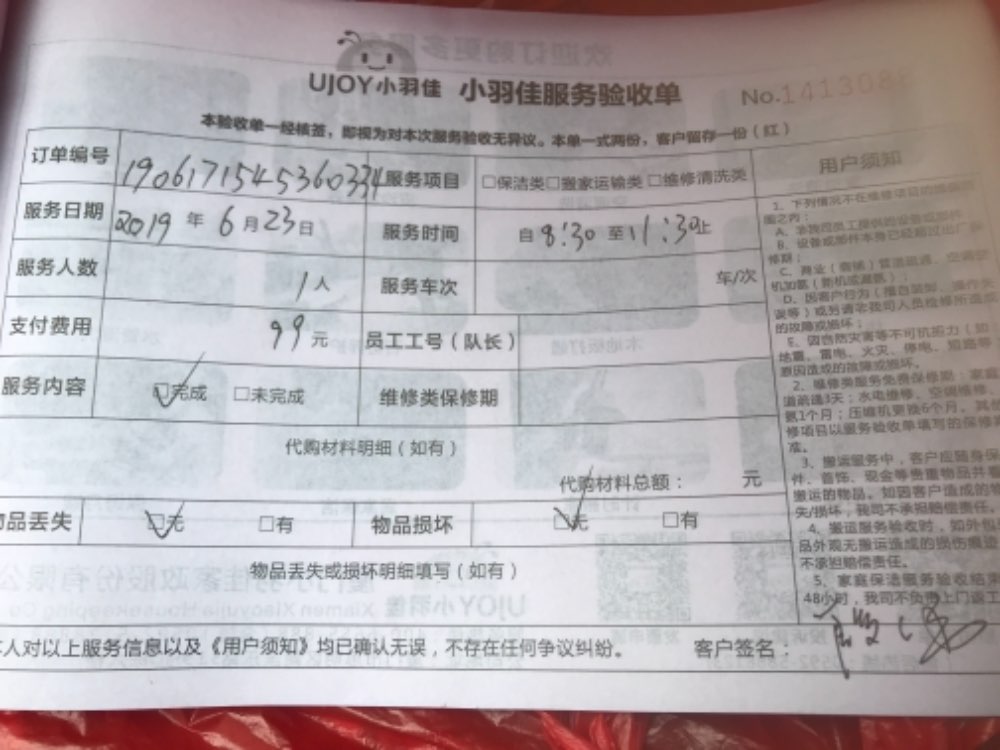 UJOY小羽佳 小羽佳服务验收单 No.141308
本验收单一经核签，即视为对本次服务验收无异议。本单一式两份，客户留存一份（红）
订单编号 1906171545360334 服务项目 □保洁类□搬家运输类□维修清洗类
服务日期 2019年6月23日 服务时间 自8:30至11:30止
服务人数 1人 服务车次 车/次
支付费用 99元 员工工号（队长）
服务内容 ☑完成 □未完成 维修类保修期
代购材料明细（如有）
代购材料总额： 元
品丢失 ☑无 □有 物品损坏 ☑无 □有
物品丢失或损坏明细填写（如有）
人对以上服务信息以及《用户须知》均已确认无误，不存在任何争议纠纷。 客户签名：
用户须知
1、下列情况不在维修项目的维保范
围之内：
A、非我司员工提供的设备或部件
B、设备或部件本身已经超过出厂保
修期；
C、商业（套描）管道疏通、空调空
D、因客户行为
的故障或损坏；
E、因自然灾害等不可机拒力（如
地震、雷电、火灾、停电、短路等
原因造成的故障或损坏。
2、维修类服务免费保修期：家庭
道疏通3天；水电维修、空调维修
氨1个月；压缩机更换6个月。其
修项目以服务验收单填写的保修
准。
3、搬运服务中，客户应随身保
件、首饰、现金等贵重物品共
搬运的物品。如因客户造成的
失/损坏，我司不承担赔偿责任。
4、搬运服务验收时，如外包
品外观无搬运造成的损伤痕迹
不承担赔偿责任。
5、家庭保洁服务验收结束
48小时，我司不负责上门返工